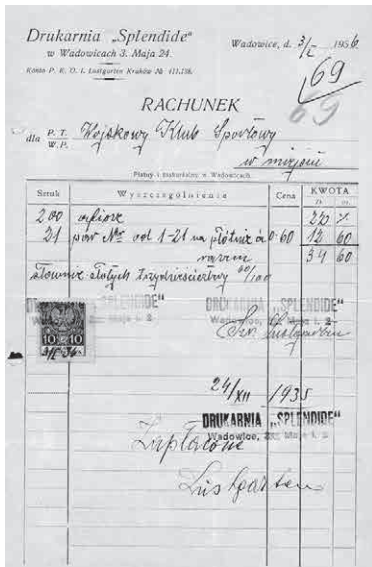 Drukarnia „Splendide"
w Wadowicach 3. Maja 24.
Konto P. K. O. I. Lustgarten Kraków № 411.236.
Wadowice, d. 3/I 1936
69
69
RACHUNEK
dla P. T. W.P. Wojskowy Klub Sportowy
w miejscu
Płatny i zaskarżalny w Wadowicach.
Sztuk Wyszczególnienie Cena KWOTA
zł gr.
200 afisze 22
21 par Nr od 1-21 na płótnie à 0.60 12 60
razem 34 60
słownie złotych trzydzieścicztery 60/100
DRUKARNIA „SPLENDIDE" DRUKARNIA „SPLENDIDE"
Wadowice, Maja l. 2. Wadowice, Maja l. 2.
10 10
3/I 36
Lustgarten
24/XII 1935
DRUKARNIA „SPLENDIDE"
Wadowice, Maja l. 2.
Zapłacone
Lustgarten